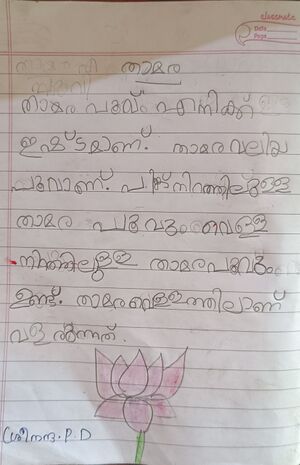 classmate
Date
Page
താമര
താമര പൂവ് എനിക്ക്
ഇഷ്ടമാണ്. താമര വലിയ
പൂവാണ്. പിങ്ക് നിറത്തിലുള്ള
താമര പൂവും വെള്ള
നിറത്തിലുള്ള താമരപൂവും
ഉണ്ട്. താമര വെള്ളത്തിലാണ്
വളരുന്നത്.
ശ്രീനന്ദ. P. D